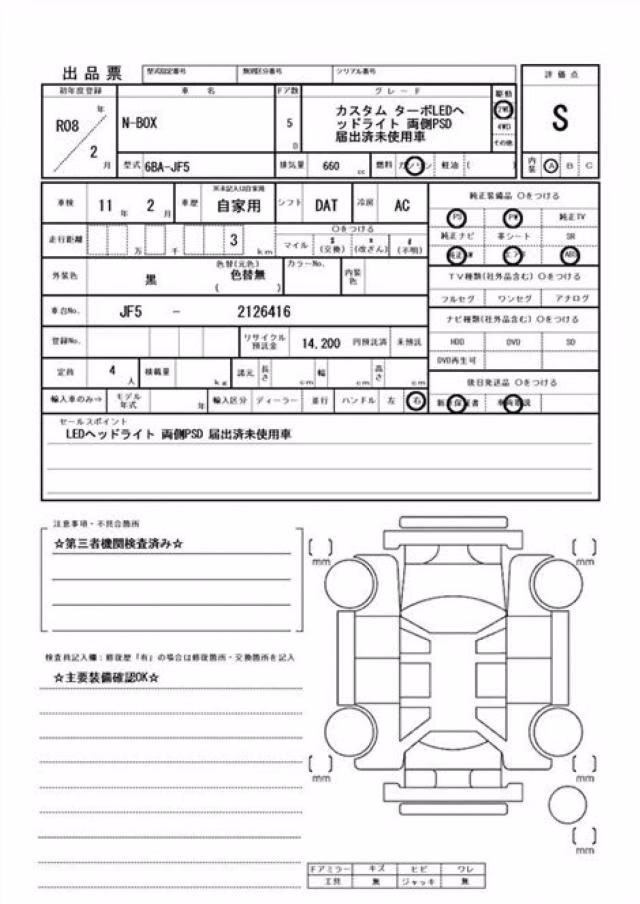 出品票 型式指定番号 類別区分番号 シリアル番号
評価点
初年度登録 車名 ドア数 グレード 駆動
R08 年 2 月
N-BOX
5 D
カスタム ターボLEDヘ
ッドライト 両側PSD
届出済未使用車
2WD
4WD
その他
S
型式 6BA-JF5 排気量 660 cc 燃料 ガソリン 軽油 ( )
内装 A B C
車検 11 年 2 月 車歴 ※未記入は自家用 自家用 シフト DAT 冷房 AC
純正装備品 ○をつける
PS PW 純正TV
走行距離 万 千 3 km
○をつける
マイル $(交換) *(改ざん) #(不明)
純正ナビ 革シート SR
純正AW エアB ABS
外装色 黒 色替(元色) 色替無 ( ) カラーNo. 内装色
TV種類(社外品含む) ○をつける
フルセグ ワンセグ アナログ
車台No. JF5 - 2126416
ナビ種類(社外品含む) ○をつける
HDD DVD SD
DVD再生可
登録No. リサイクル預託金 14,200 円預託済 未預託
定員 4 人 積載量 kg 諸元 長さ cm 幅 cm 高さ cm
後日発送品 ○をつける
輸入車のみ⇒ モデル年式 年 輸入区分 ディーラー 並行 ハンドル 左 右
新車保証書
セールスポイント
LEDヘッドライト 両側PSD 届出済未使用車
注意事項・不具合箇所
☆第三者機関検査済み☆
検査員記入欄:修復歴「有」の場合は修復箇所・交換箇所を記入
☆主要装備確認OK☆
[ ] mm
[ ] mm
[ ] mm
[ ] mm
[ ] mm
ドアミラー キズ ヒビ ワレ
工具 無 ジャッキ 無